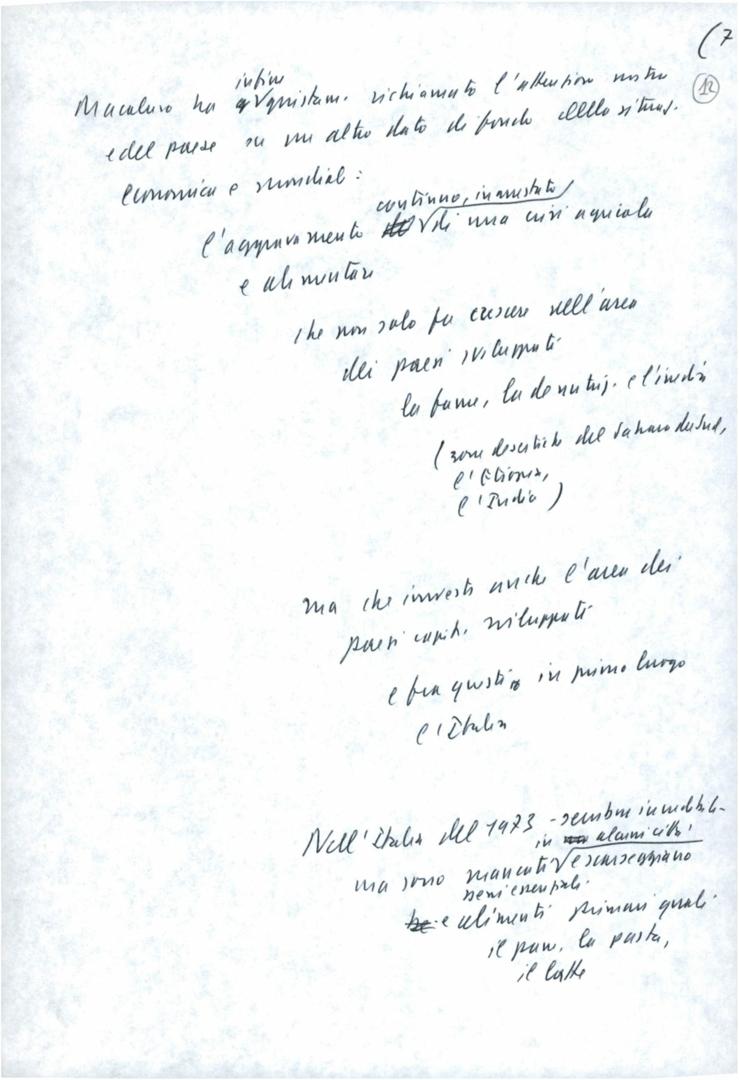 (7
12
Macaluso ha infine giustam. richiamato l'attenzione nostra
e del paese su un altro dato di fondo della situaz.
economica e mondiale:
l'aggravamento continuo, inarrestato di una crisi agricola
e alimentare
che non solo fa crescere nell'area
dei paesi sviluppati
la fame, la denutriz. e l'inedia
(zone desertiche del Sahara del sud,
l'Etiopia,
l'India)
ma che investe anche l'area dei
paesi capit. sviluppati
e fra questi in primo luogo
l'Italia
Nell'Italia del 1973 - sembra incredibile -
ma sono mancati e scarseggiano in alcuni città
beni essenziali
e alimenti primari quali
il pane, la pasta,
il latte